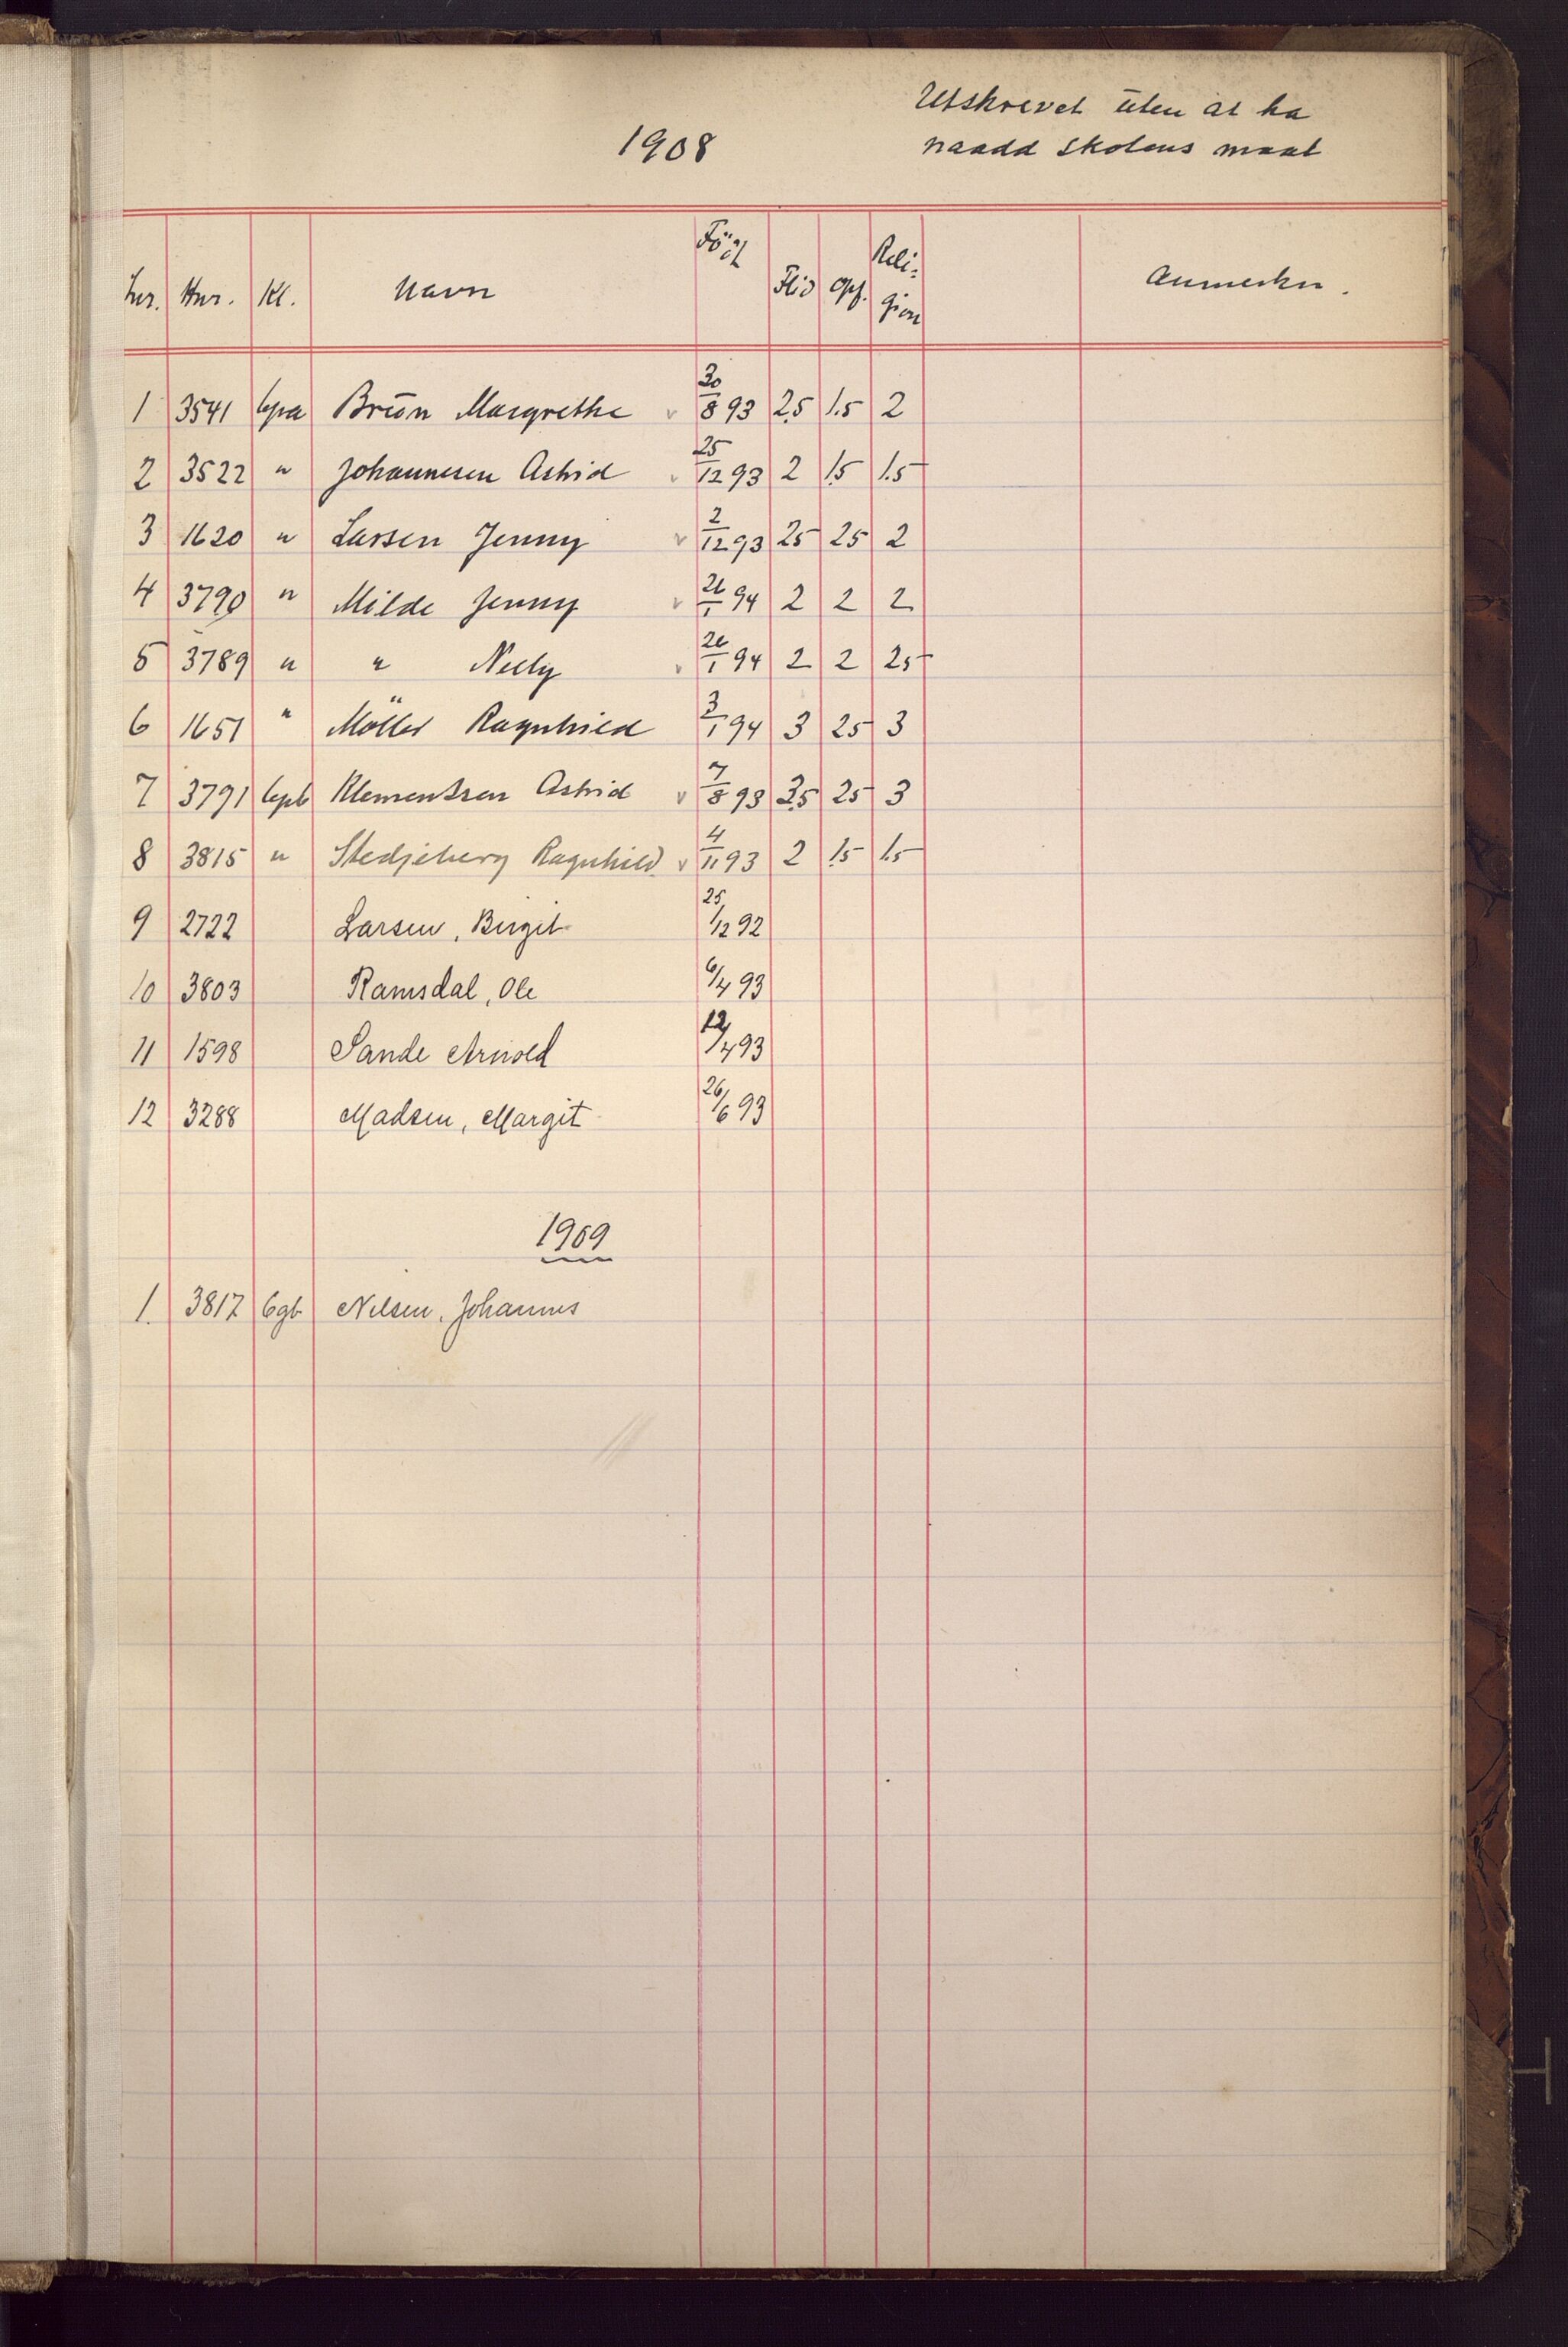 1908
Utskrevet uten at ha
naadd skolens maal
Lnr. Hnr. Kl. Navn Född Flid Opf. Reli-gion Anmerkn.
1 3541 6pa Brun Margrethe v 30/8 93 2.5 1.5 2
2 3522 " Johannesen Astrid v 25/12 93 2 1.5 1.5
3 1620 " Larsen Jenny v 2/12 93 25 25 2
4 3790 " Milde Jenny v 26/1 94 2 2 2
5 3789 " " Nelly v 26/1 94 2 2 25
6 1651 " Möller Ragnhild 3/1 94 3 25 3
7 3791 6pb Klementsen Astrid v 7/8 93 3.5 25 3
8 3815 " Stedjeberg Ragnhild v 4/11 93 2 1.5 1.5
9 2722 Larsen, Birgit 25/12 92
10 3803 Ramsdal, Ole 6/4 93
11 1598 Sande Arnold 12/4 93
12 3288 Madsen, Margit 26/6 93
1909
1. 3817 6gb Nilsen, Johannes